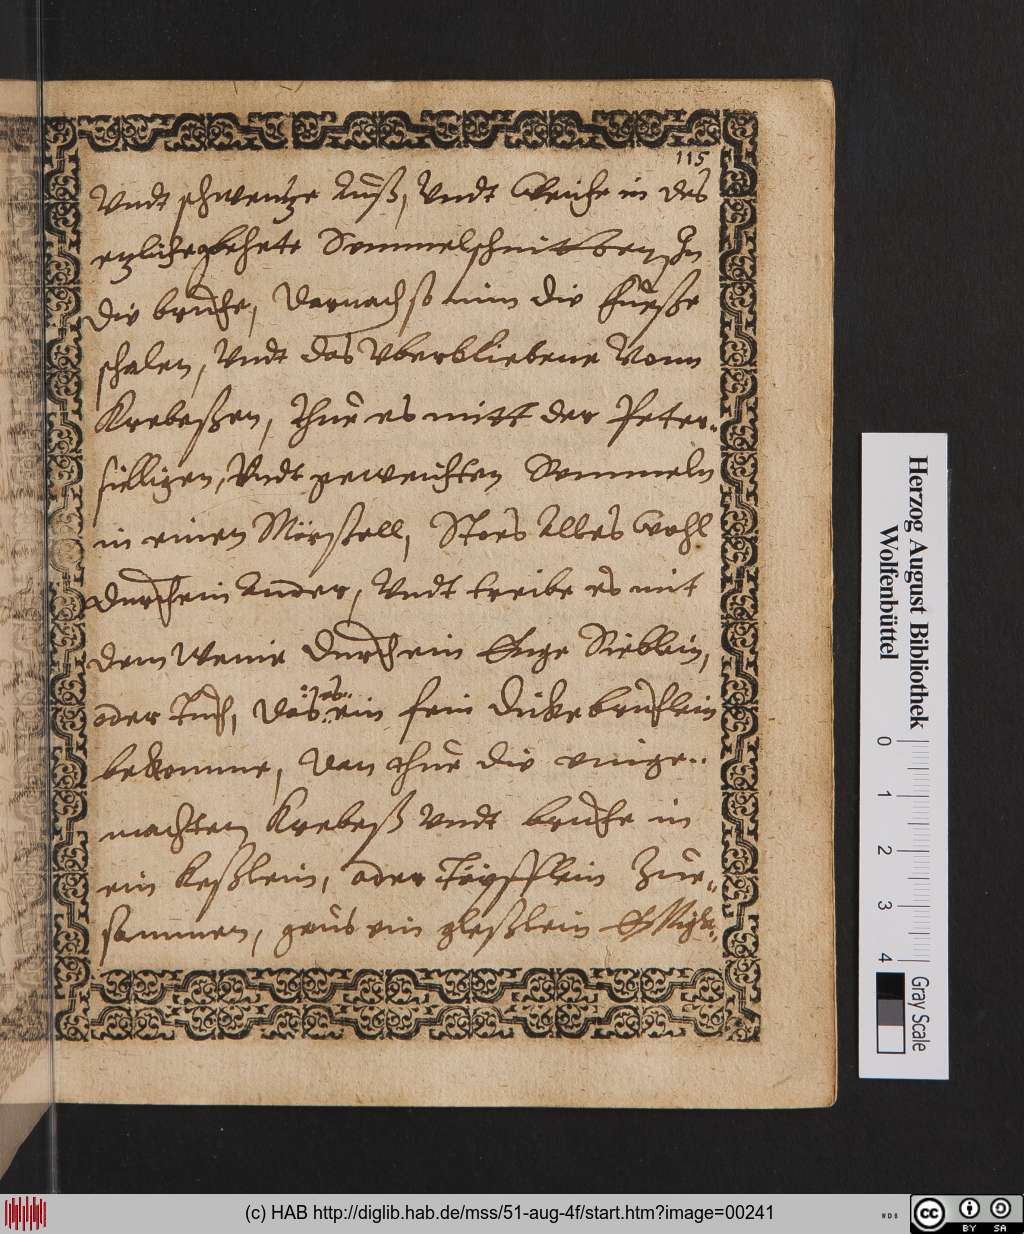 115
Vndt schwentze Auß, Vndt Weiche in des
etzliche gebehete Semmelschnitten In
die bruhe, Darnach so nim die Fueße
schalen, Vndt das Vberbliebene Vonn
Krebeßen, Thue es mitt der Peter-
silligen, Vndt geweichten Semmeln
in einen Mörßell, Stoes Alles Wohl
durch ein Ander, Vndt treibe es mit
dem Weine durch ein Enge Sieblein,
oder Tuch, das es ein fein dicke bruhlein
bekomme, Dan thue die einge-
machten Krebeß Vndt bruhe in
ein Keßlein, oder Töpfflein Zue-
sammen, geus ein gleßlein
Herzog August Bibliothek
Wolfenbüttel
0 1 2 3 4
Gray Scale
(c) HAB http://diglib.hab.de/mss/51-aug-4f/start.htm?image=00241
WDB
cc BY SA